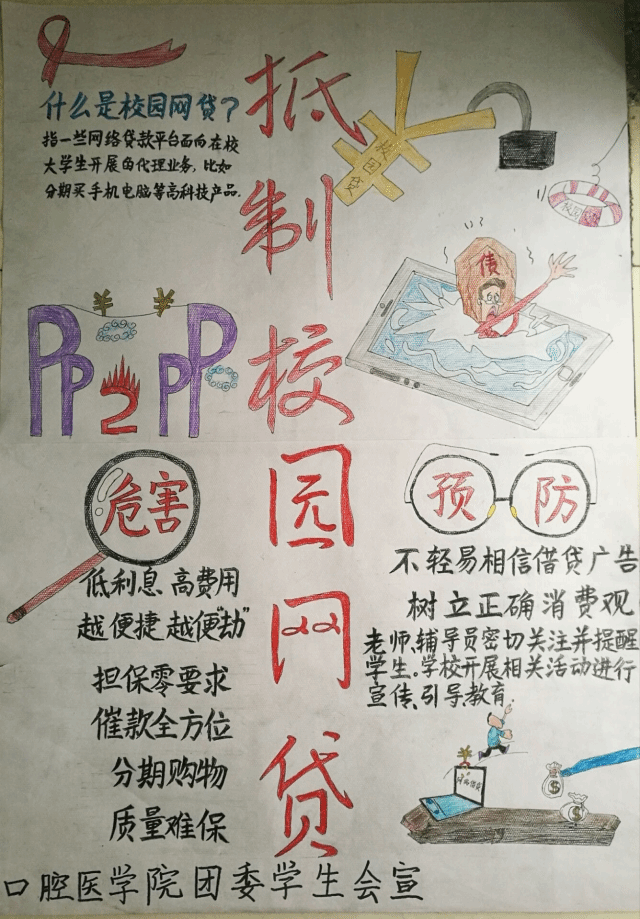 抵制校园网贷
什么是校园网贷？
指一些网络贷款平台面向在校
大学生开展的代理业务，比如
分期买手机电脑等高科技产品.
校园贷
债
PP2PP
危害
低利息 高费用
越便捷 越便"劫"
担保零要求
催款全方位
分期购物
质量难保
预防
不轻易相信借贷广告
树立正确消费观
老师、辅导员密切关注并提醒
学生。学校开展相关活动进行
宣传、引导、教育.
口腔医学院团委学生会宣